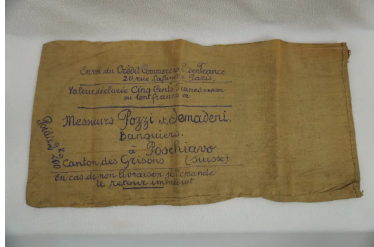 Envoi du Crédit Commercial de France
20, rue Lafayette, Paris,
Valeur déclarée Cinq Cents francs
ou
Messieurs Pozzi et Semadeni.
Banquiers.
à Poschiavo
Canton des Grisons (Suisse)
En cas de non livraison je demande
le retour immédiat